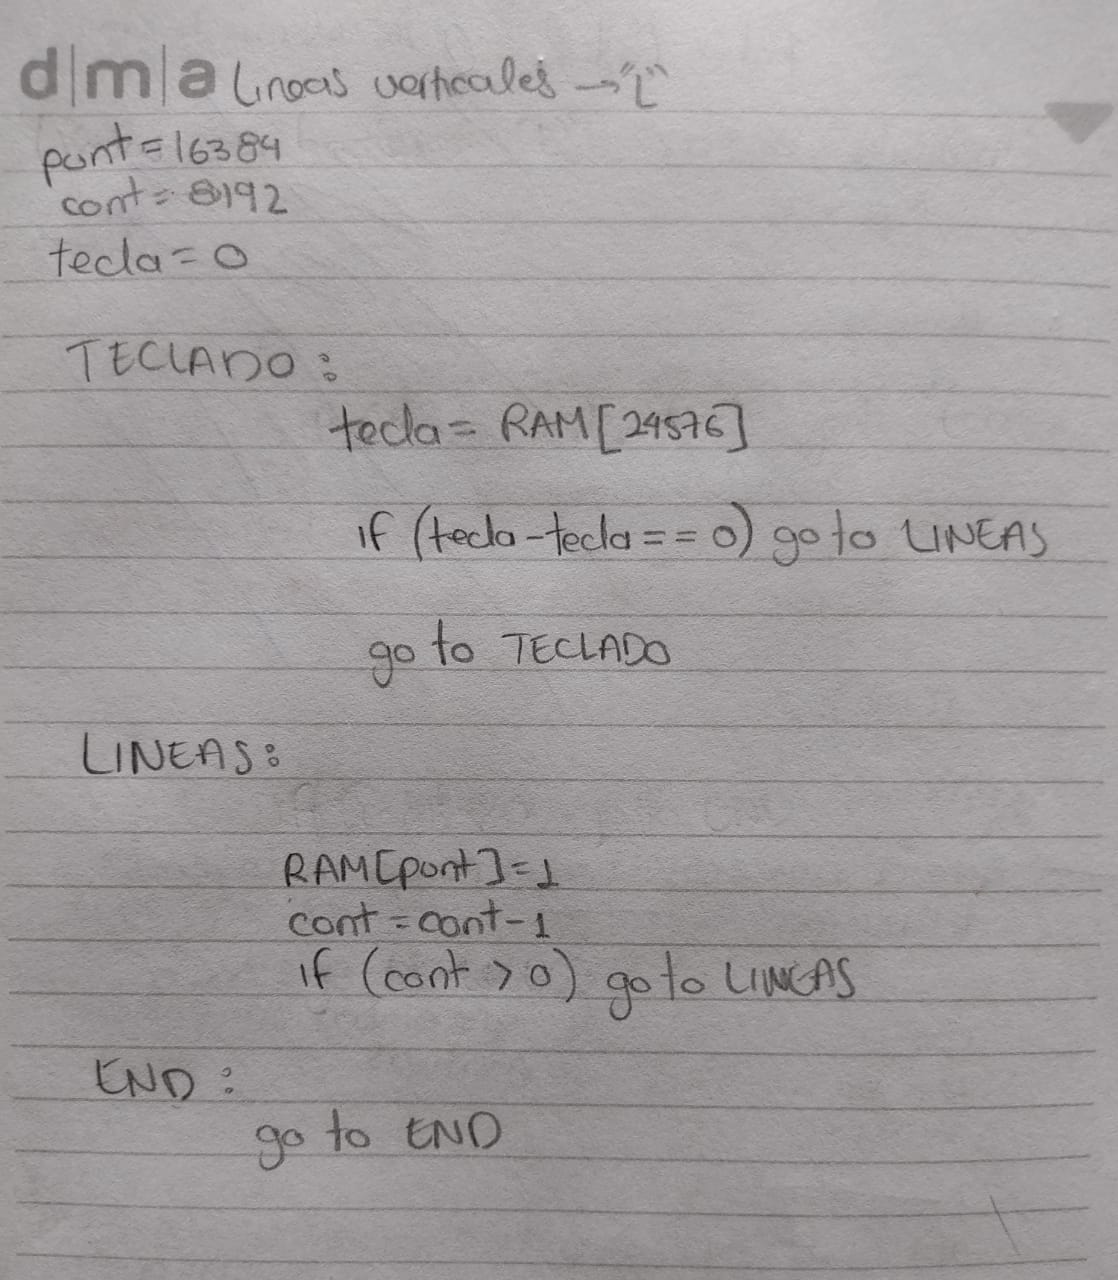 d|m|a Lineas verticales → "L"
punt = 16384
cont = 8192
tecla = 0
TECLADO :
tecla = RAM [24576]
if (tecla - tecla == 0) go to LINEAS
go to TECLADO
LINEAS :
RAM [punt] = 1
cont = cont - 1
if (cont > 0) go to LINEAS
END :
go to END